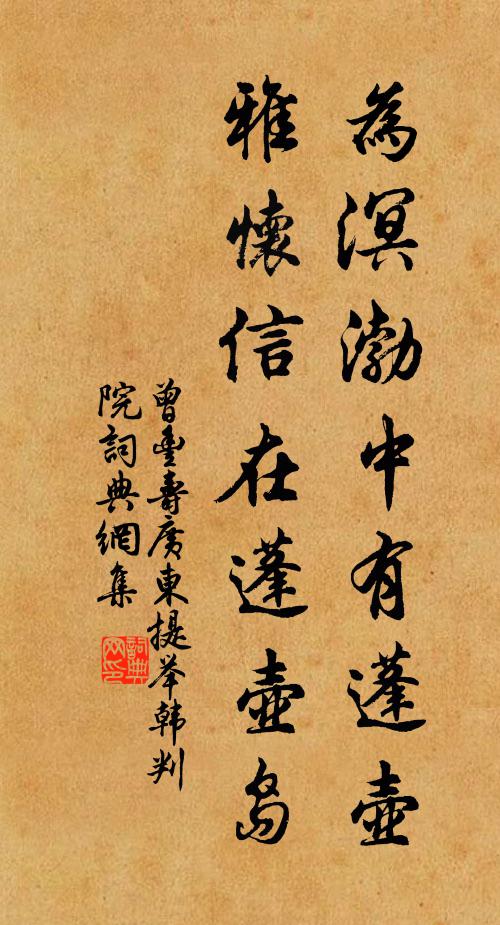 為溟渤中有蓬壺
雅懷信在蓬壺島
曾豐壽廣東提举韩判
院詞典網集
詞典网印